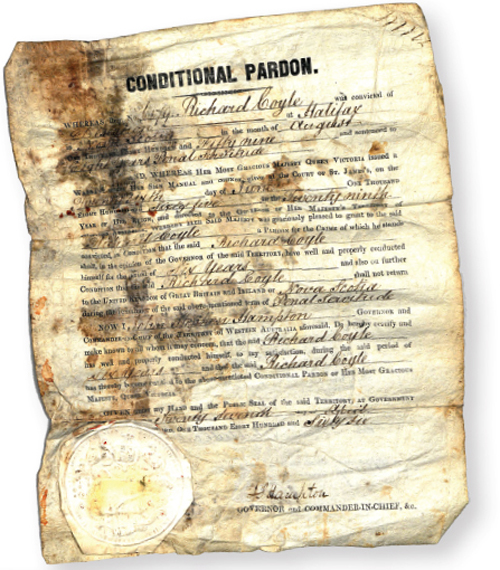 CONDITIONAL PARDON.
WHEREAS Richard Coyle was convicted of
at Halifax
in the month of August
Hundred and Fifty nine and sentenced to
Eight Years Penal Servitude
AND, WHEREAS Her Most Gracious Majesty Queen Victoria issued a
Warrant under Her Sign Manual and given at the Court of St. James's, on the
day of June One Thousand
Eight Hundred Sixty five in the Twenty ninth
Year of Her Reign, and directed to the Governor of Her Majesty's
Whereby Her said Majesty was graciously pleased to grant to the said
Richard Coyle a Pardon for the Crime of which he stands
convicted, on Condition that the said Richard Coyle
shall, in the opinion of the Governor of the said Territory, have well and properly conducted
himself for the Six Years and also on further
Condition that the said Richard Coyle shall not return
to the United Kingdom of Great Britain and Ireland or Nova Scotia
during the of the said above mentioned term of Penal Servitude
NOW I, John Hampton Governor and
Commander-in-Chief of the Territory of Western Australia aforesaid, Do hereby certify and
make known to all whom it may concern, that the said Richard Coyle
has well and properly conducted himself to my satisfaction, during the said period of
Six Years and that the said Richard Coyle
has thereby become to the above-mentioned Conditional Pardon of Her Most Gracious
Majesty, Queen Victoria.
GIVEN under my Hand and the Public Seal of the said Territory, at Government
Twenty Seventh
One Thousand Eight Hundred and Sixty Six
J Hampton
GOVERNOR and COMMANDER-IN-CHIEF, &c.